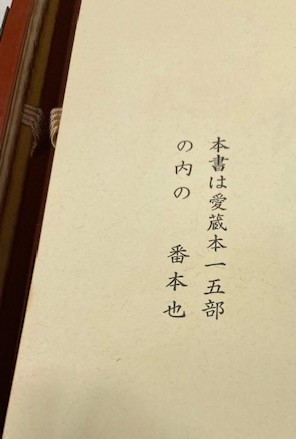 本書は愛蔵本一五部
の内の　番本也